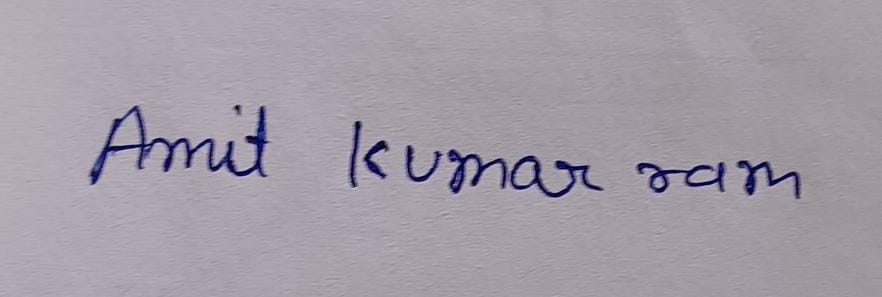 Amit Kumar ram